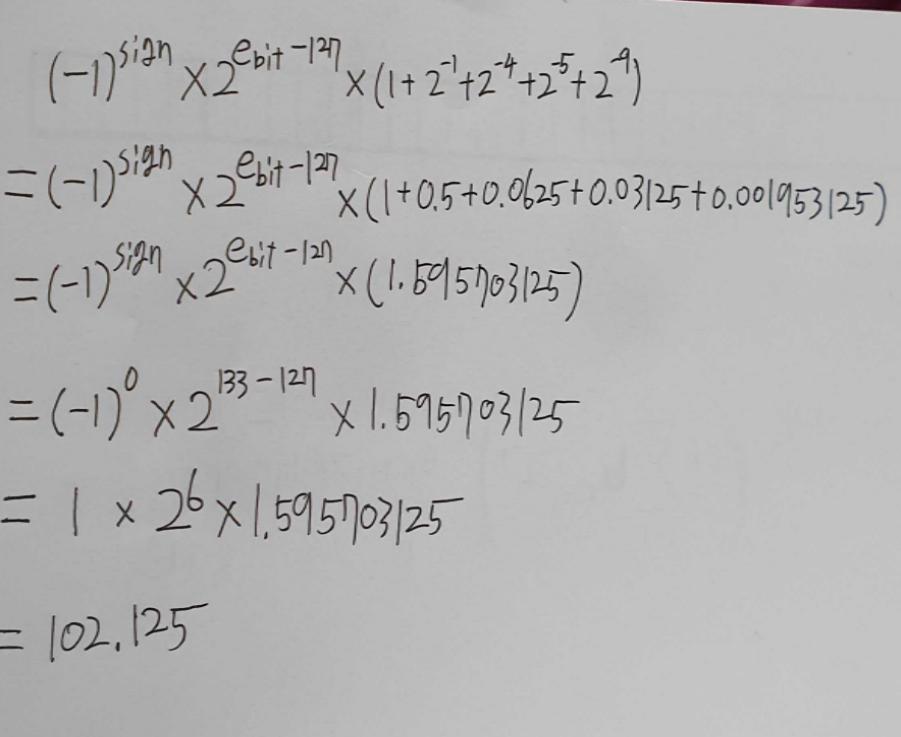 (-1)^sign × 2^(ebit-127) × (1+2^-1+2^-4+2^-5+2^-9)
=(-1)^sign × 2^(ebit-127) × (1+0.5+0.0625+0.03125+0.001953125)
=(-1)^sign × 2^(ebit-127) × (1.595703125)
=(-1)^0 × 2^(133-127) × 1.595703125
= 1 × 2^6 × 1.595703125
= 102.125